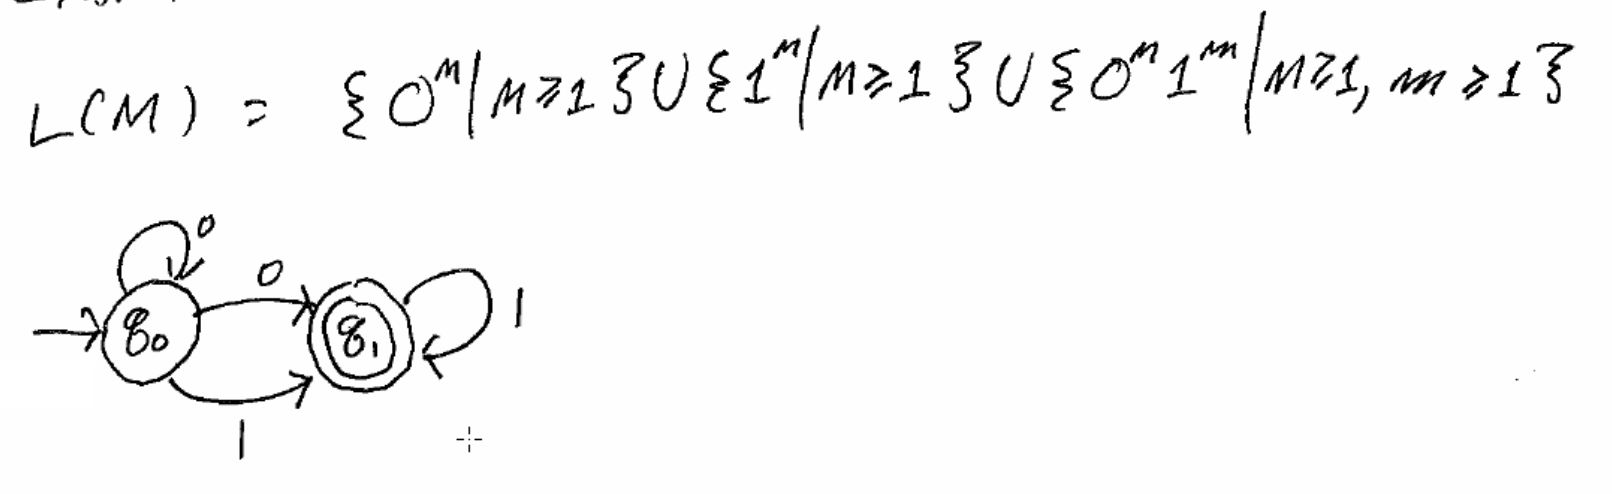 L(M) = {0ⁿ | n ≥ 1} ∪ {1ⁿ | n ≥ 1} ∪ {0ⁿ1ᵐ | n ≥ 1, m ≥ 1}
0
0
q₀
q₁
1
1